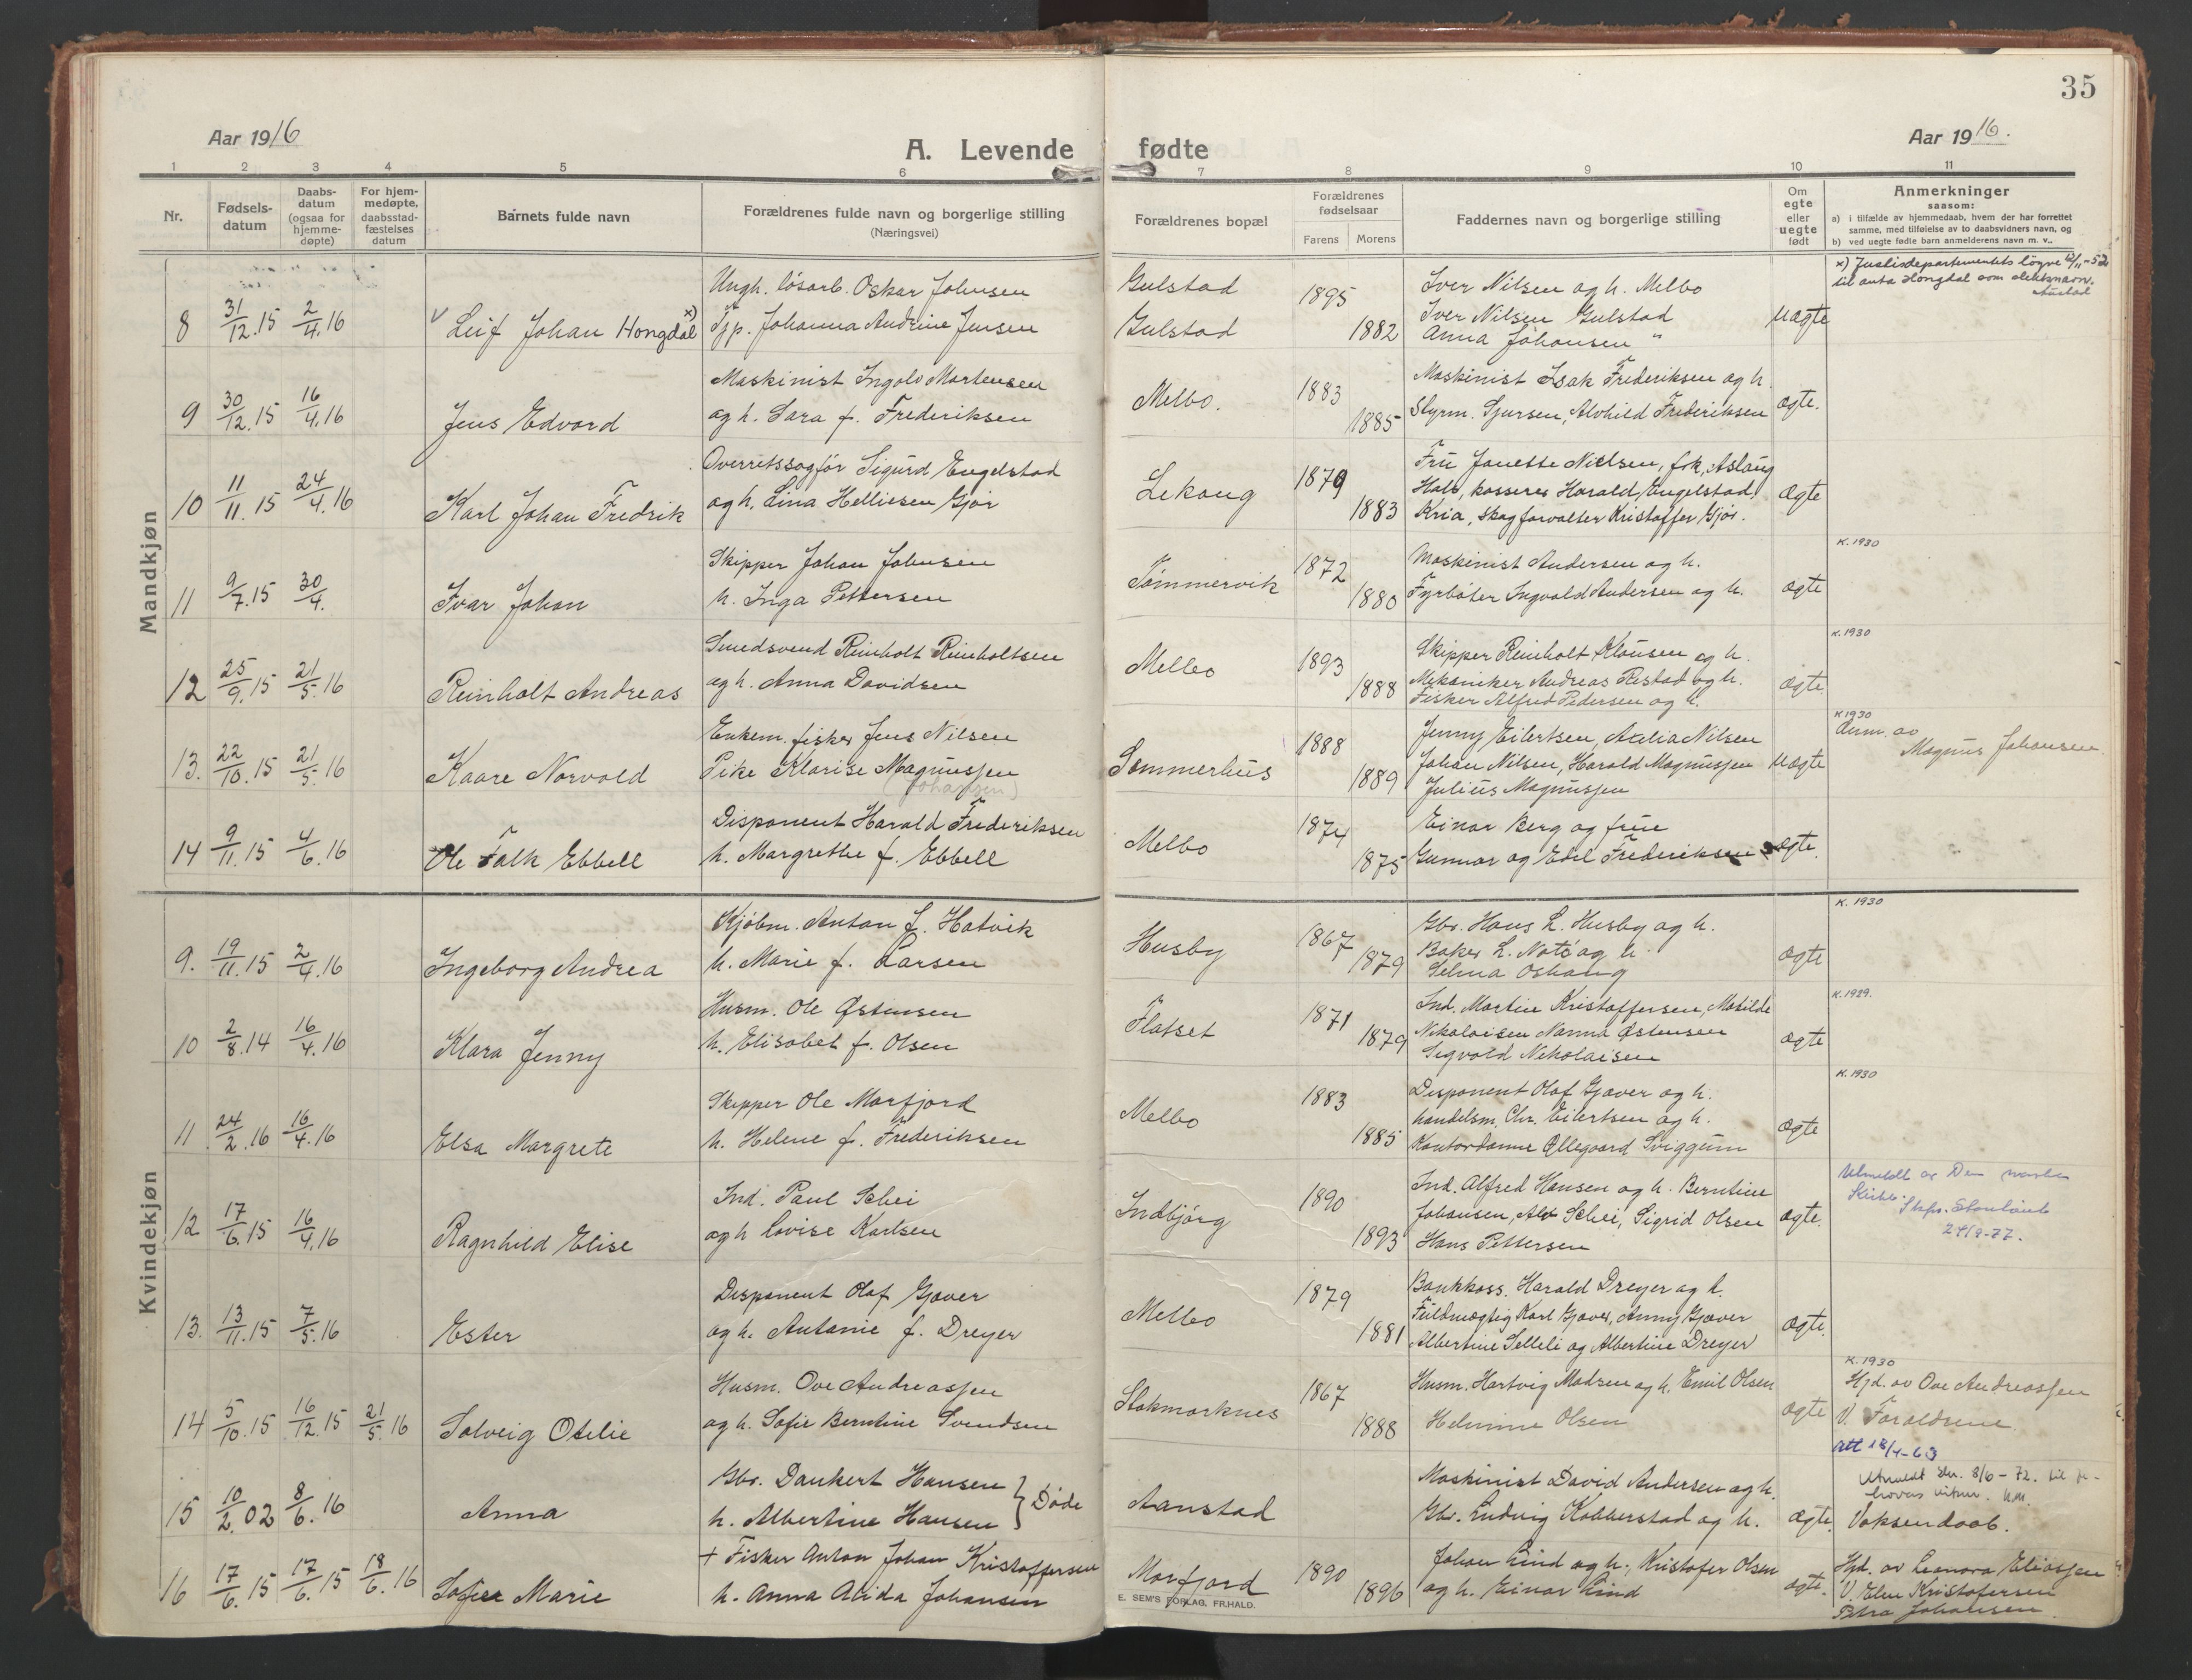 35
Aar 1916
A. Levende fødte
Aar 1916.
1 2 3 4 5 6 7 8 9 10 11
Nr.
Fødselsdatum
Daabsdatum (ogsaa for hjemmedøpte)
For hjemmedøpte, daabsstadfæstelses datum
Barnets fulde navn
Forældrenes fulde navn og borgerlige stilling
(Næringsvei)
Forældrenes bopæl
Forældrenes fødselsaar
Farens Morens
Faddernes navn og borgerlige stilling
Om egte eller uegte født
Anmerkninger
saasom:
a) i tilfælde av hjemmedaab, hvem der har forrettet
samme, med tilføielse av to daabsvidners navn, og
b) ved uegte fødte barn anmelderens navn m. v..
Mandkjøn
8 31/12.15 2/4.16 Leif Johan Hongdal x)
Ungk. løsarb. Oskar Johnsen
Tjp. Johanna Andrine Jensen
Gulstad
Gulstad
1895 1882
Iver Nilsen og h. Melbo
Iver Nilsen Gulstad
Anna Johansen "
uægte
x) Justisdepartementets løyve 12/11-52
til anta Hongdal som slektsnavn.
9 30/12.15 16/4.16 Jens Edvard
Maskinist Ingolv Martensen
og h. Sara f. Frederiksen
Melbo.
1883 1885
Maskinist Isak Frederiksen og h.
Styrm. Sjursen, Alvhild Frederiksen
ægte.
10 11/11.15 24/4.16 Karl Johan Fredrik
Overretssagfør Sigurd Engelstad
og h. Lina Helliesen Gjør
Lekang
1879 1883
Fru Janette Nielsen, frk. Aslaug
Hals, kasserer Harald Engelstad,
Kria, skogforvalter Kristoffer Gjør.
ægte
11 9/7.15 30/4. Ivar Johan
Skipper Johan Johnsen
h. Inga Pettersen
Tømmervik
1872 1880
Maskinist Andersen og h.
Fyrbøter Ingvald Andersen og h.
ægte
K. 1930
12 25/9.15 21/5.16 Reinholt Andreas
Smedsvend Reinholt Reinholtsen
og h. Anna Davidsen
Melbo
1893 1888
Skipper Reinholt Klausen og h.
Mekaniker Andreas Restad og h.
Fisker Alfred Pedersen og h.
ægte
K. 1930
13. 22/10.15 21/5.16 Kaare Norvald
Enkem. fisker Jens Nilsen
Pike Klarise Magnussen
(Johansen)
Sommerhus
1888 1889
Jenny Eilertsen, Axelia Nilsen
Johan Nilsen, Harald Magnussen
Julius Magnussen
uægte
K 1930
Anm. av
Magnus Johansen.
14 9/11.15 4/6.16 Ole Falk Ebbell
Disponent Harald Frederiksen
h. Margrethe f. Ebbell
Melbo
1874 1875
Einar Berg og frue
Gunnar og Edel Frederiksen
ægte.
Kvindekjøn
9. 19/11.15 2/4.16 Ingeborg Andrea
Kjøbm. Anton J. Hatvik
h. Marie f. Larsen
Husby
1867 1879
Gbr. Hans L. Husby og h.
Baker L. Natø og h.
Selma Oshaug
ægte
K. 1930
10 2/8.14 16/4.16 Klara Jenny
Husm. Ole Østensen
h. Elisabet f. Olsen
Flatset
1871 1879
Ind. Martin Kristoffersen, Matilde
Nikolaisen Nanna Østensen
Sigvald Nikolaisen
ægte
K. 1929.
11 24/2.16 16/4.16 Elsa Margrete
Skipper Ole Morfjord
h. Helene f. Frederiksen
Melbo
1883 1885
Disponent Olaf Gjæver og h.
handelsm. Chr. Eilertsen og h.
Kontordame Øllegaard Sviggum
ægte
K. 1930
12 17/6.15 16/4.16 Ragnhild Elise
Ind. Paul Schei
og h Lovise Karlsen
Indbjørg
1890 1893
Ind. Alfred Hansen og h. Berntine
Johansen, Alv Schei, Sigrid Olsen
Hans Pettersen
ægte.
Utmeldt av Den norske
24/8-77.
13. 13/11.15 7/5.16 Ester
Disponent Olaf Gjæver
og h. Antonie f. Dreyer
Melbo
1879 1881
Bankkass. Harald Dreyer og h.
Fuldmægtig Karl Gjæver, Anny Gjæver
Albertine Selleli og Albertine Dreyer
ægte.
14 5/10.15 16/12.15 21/5.16 Solveig Otelie
Husm. Ove Andreassen
og h. Sofie Berntine Svendsen
Stokmarknes
1867 1888
Husm. Hartvig Madsen og h. Emil Olsen
Helmine Olsen
ægte
K. 1930
Hjd. av Ove Andreassen
V. Forældrene.
15 10/2.02 8/6.16 Anna
Gbr. Dankert Hansen
h. Albertine Hansen } Døde
Aanstad
Maskinist David Andersen og h.
Gbr. Ludvig Kobberstad og h.
ægte.
att 18/4-63
Utmeldt 8/6-72.
Voksendaab.
16 17/6.15 17/6.15 18/6.16 Sofie Marie
+ Fisker Anton Johan Kristoffersen
h. Anna Alida Johansen
Morfjord
1890 1896
Johan Lind og h., Kristofer Olsen
og h. Einar Lind
ægte.
Hjd. av Leonora Eliassen
V. Elen Kristofersen
Petra Johansen.
E. SEM'S FORLAG, FR.HALD.